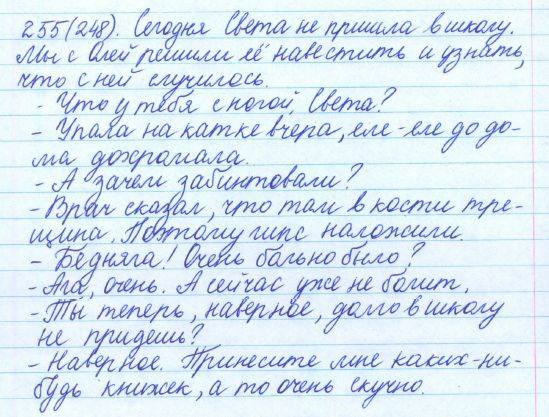 255(248). Сегодня Света не пришла в школу.
Мы с Олей решили её навестить и узнать,
что с ней случилось.
- Что у тебя с ногой, Света?
- Упала на катке вчера, еле-еле до до-
ма дохромала.
- А зачем забинтовали?
- Врач сказал, что там в кости тре-
щина. Поэтому гипс наложили.
- Бедняга! Очень больно было?
- Ага, очень. А сейчас уже не болит.
- Ты теперь, наверное, долго в школу
не придешь?
- Наверное. Принесите мне каких-ни-
будь книжек, а то очень скучно.